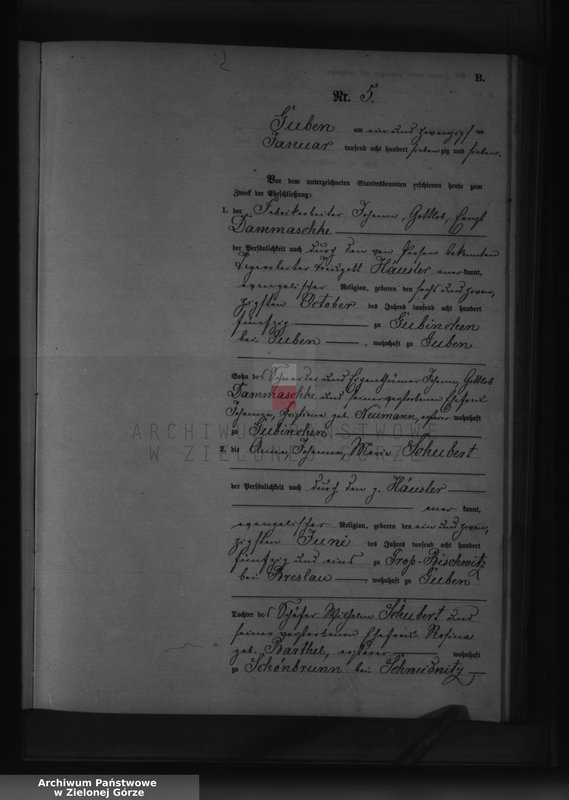 B.
Nr. 5.
Guben am ein und zwanzigsten
Januar tausend acht hundert sieben zig und sieben.
Vor dem unterzeichneten Standesbeamten erschienen heute zum
Zweck der Eheschließung:
1. der Fabrikarbeiter Johann, Gottlob, Ernst
Dammaschke
der Persönlichkeit nach durch den von Person bekannten
Häusler aner kannt,
evangelischer Religion, geboren den sechs und zwan
zigsten October des Jahres tausend acht hundert
fünfzig zu Gubinchen
bei Guben, wohnhaft zu Guben
Sohn des Schneider und Eigenthümer Johann Gottlob
Dammaschke und seiner verstorbenen Ehefrau
Johanne, Christiane geb. Neumann, wohnhaft
zu Gubinchen
ARCHIWUM PAŃSTWOWE
W ZIELONEJ GÓRZE
2. die Anna, Johanna, Maria Schubert
der Persönlichkeit nach durch den p. Häusler
aner kannt,
evangelischer Religion, geboren den ein und zwan
zigsten Juni des Jahres tausend acht hundert
fünfzig und eins zu Groß-Bischwitz
bei Breslau, wohnhaft zu Guben
Tochter des Schäfer Wilhelm Schubert und
seiner verstorbenen Ehefrau Rosina
geb. Barthel, ersterer wohnhaft
zu Schönbrunn bei Schweidnitz
Archiwum Państwowe
w Zielonej Górze